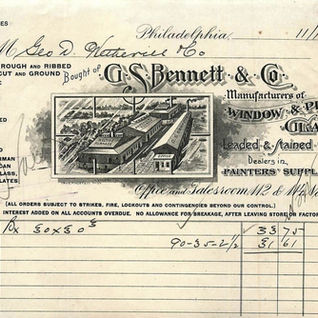 Philadelphia, 11/1
M Geo D. Wetherill & Co
ROUGH and RIBBED
CUT and GROUND
Bought of G. S. Bennett & Co.
Manufacturers of
WINDOW & PL
GLA
Leaded & Stained
Dealers in
PAINTERS' SUPPL
RMAN
OAN
LASS,
LATES
Office and Salesroom, 112 & 114
(ALL ORDERS SUBJECT TO STRIKES, FIRE, LOCKOUTS AND CONTINGENCIES BEYOND OUR CONTROL.)
INTEREST ADDED ON ALL ACCOUNTS OVERDUE. NO ALLOWANCE FOR BREAKAGE, AFTER LEAVING STORE OR FACTOR
30x30 33 75
90-35-2½ 31 61